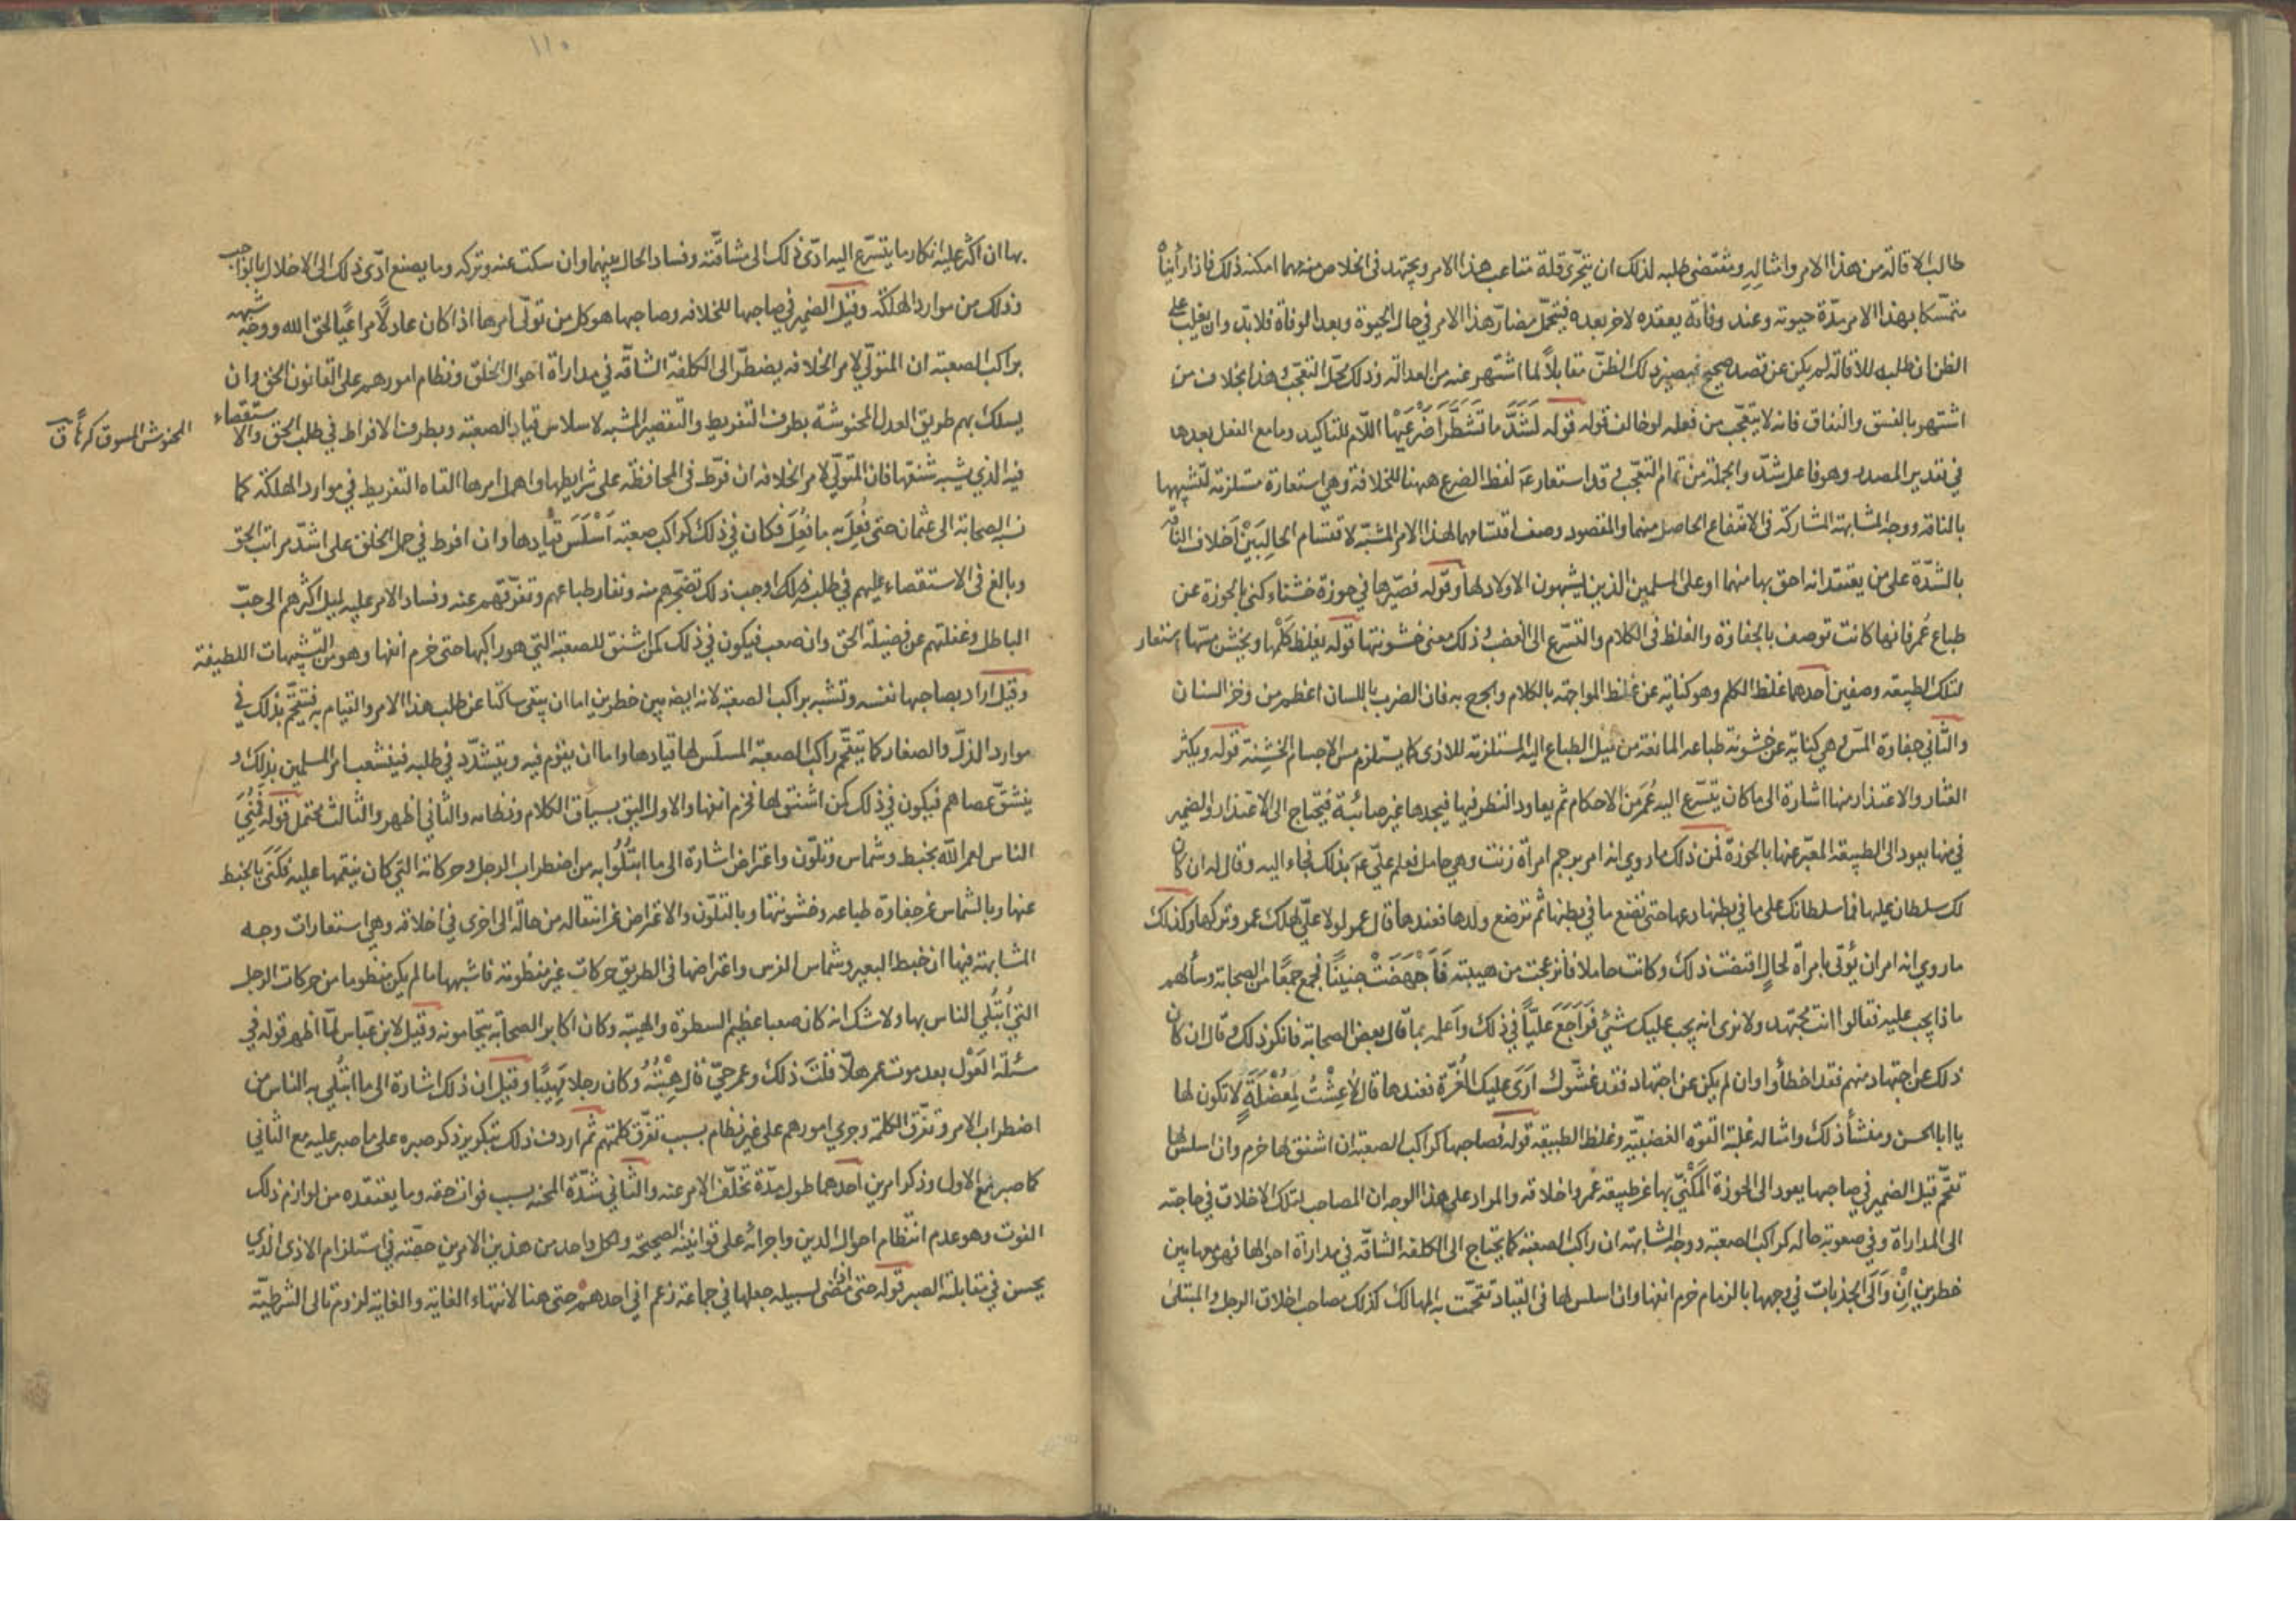 طالب الاقالة من هذا الامر وامثاله ومقتضى طلبه لذلك ان يتحرّى قلة متاعب هذا الامر ويجتهد فى الخلاص منه مهما امكنه ذلك فاذا رأيناه
متمسّكا بهذا الامر مدّة حيوته وعند وفاته يعقده لاخر بعده فيتحمّل مضارّ هذا الامر في حال الحيوة وبعد الوفاة فلا بدّ وان يغلب على
الظن ان طلبه للاقالة لم يكن عن قصد صحيح فيصير ذلك الظنّ مقابلاً لما اشتهر عنه من العدالة وذلك محلّ التعجّب هذا بخلاف من
اشتهر بالفسق والنفاق فانه لا يتعجّب من فعله لو خالف قوله قوله لَشَدَّ مَا تَشَطَّرَا ضَرْعَيْهَا اللّام للتاكيد وما مع الفعل بعدها
في تقدير المصدر وهو فاعل شدّ والجملة من تمام التعجّب وقد استعار عَ لفظ الضرع ههنا للخلافة وهي استعارة مستلزمة لتشبيهها
بالناقة ووجه المشابهة المشاركة فى الانتفاع الحاصل منهما والمقصود وصف اقتسامهما لهذا الامر المشبّه لاقتسام الحالِبَيْنِ اَخلاف الناقة
بالشدّة على من يعتقد انه احق بها منهما او على المسلمين الذين يشبهون الاولاد لها وقوله فصيّرها في حوزة خشناء كنى بالحوزة عن
طباع عُمر فانها كانت توصف بالجفاوة والغلظ فى الكلام والتسّرع الى الغضب وذلك معنى خشونتها قوله يغلظ كَلْمها ويخشن مسّها استعار
لتلك الطبيعة وصفين احدهما غلظ الكلم وهو كناية عن غلظ المواجهة بالكلام والجرح به فان الضرب باللسان اعظم من وخز السنان
والثّاني جفاوة المسّ وهي كناية عن خشونة طباعه المانعة من ميل الطباع اليه المستلزمة للاذى كما يستلزم مس الاجسام الخشِنة قوله ويكثر
العثار والاعتذار منها اشارة الى ما كان يتسّرع اليه عُمَر من الاحكام ثم يعاود النظر فيها فيجدها غير صائبة فيحتاج الى الاعتذار والضمير
في منها يعود الى الطبيعة المعبّر عنها بالحوزة فمن ذلك ما روي انه امر برجم امرأة زنت وهي حامل فعلم عليّ عَ بذلك فجاء اليه وقال له ان كان
لك سلطان عليها فما سلطانك على ما في بطنها دعها حتى تضع ما في بطنها ثم ترضع ولدها فعندها قال عمر لولا عليّ لهلك عمر وتركها وكذلك
ما روي انه امر ان يؤتى بامرأة لحالٍ اقتضت ذلك وكانت حاملا فانزعجت من هيبته فَاَجْهَضَتْ جنينًا فجمع جمعًا من الصحابة وسألهم
ماذا يجب عليه فقالوا انت مُجتهد ولا نرى انه يجب عليك شئ فَرَاجَعَ عليّاً في ذلك واَعلمه بما قال بعض الصحابة فانكر ذلك وقال ان كان
ذلك عن اجتهاد منهم فقد اخطأوا وان لم يكن عن اجتهاد فقد غشّوك ارَى عليك الغُرّة فعندها قال لاعِشْتُ لِمُعْضَلَةٍ لا تكون لها
يا ابا الحسن ومنشأ ذلك وامثاله غلبة القوّه الغضبيّه وغلظ الطبيعة قوله فصاحبها كراكب الصعبة ان اشنق لها خرم وان اسلس لها
تقحّم قيل الضمير في صاحبها يعود الى الحوزة المَكْنِيّ بها عن طبيعة عُمر واخلاقه والمراد على هذا الوجه ان المصاحب لتلك الاخلاق في حاجته
الى المداراة وفي صعوبة حاله كراكب الصعبة ووجه المشابهة ان راكب الصعبة كما يحتاج الى الكلفة الشاقّه في مداراة احوالها فهو معها بين
خطرين اِنْ وَالَى الجذبات في وجهها بالزمام خرم انفها وان اسلس لها فى القياد تقحّمت به المهالك كذلك مصاحب اخلاق الرجل والمبتلى
١١٠
بها ان اكثر عليه انكار ما يتسّرع اليه ادّى ذلك الى مشاقّته وفساد الحال بينهما وان سكت عنه وتركه وما يصنع ادّى ذلك الى الاخلال بالواجب
وذلك من موارد الهلكة وقيل الضمير في صاحبها للخلافه وصاحبها هو كل من تولّى امرها اذا كان عادلًا مراعيًا لحق الله ووجه شبهه
براكب الصعبة ان المتولّي لامر الخلافه يضطرّ الى الكلفة الشاقّه في مداراة احوال الخلق ونظام امورهم على القانون الحق وان
يسلك بهم طريق العدل المحنوشة بطرف التفريط والتقصير المشبه لاسلاس قياد الصعبة وبطرف الافراط في طلب الحق والاستقصاء
المحنوش المسوق كرهًا ق
فيه الذي يشبه شنقها فان المتولّي لامر الخلافه ان فرّط فى المحافظة على شرايطها واهمل امرها القاه التفريط في موارد الهلكة كما
نسبه الصحابة الى عثمان حتى فُعِلَ به ما فُعِلَ فكان في ذلك كراكب صعبة اَسْلَسَ قيادها وان افرط في حمل الخلق على اشدّ مراتب الحق
وبالغ فى الاستقصاء عليهم في طلبه فذلك اوجب ذلك تضجّرهم منه ونفار طباعهم وتفرّقهم عنه وفساد الامر عليه لميل اكثرهم الى حبّ
الباطل وغفلتهم عن فضيلة الحق وان صعب فيكون في ذلك كمن اشنق للصعبة التي هو راكبها حتى خرم انفها وهو من التشبيهات اللطيفة
وقيل اراد بصاحبها نفسه وتشبه براكب الصعبة لانه ايضه بين خطرين اما ان يبقى ساكتا عن طلب هذا الامر والقيام به فيتقحّم بذلك في
موارد الذلّ والصغار كما يتقحّم راكب الصعبة المسلّس لها قيادها واما ان يقوم فيه ويتشدّد في طلبه فينشعب امر المسلمين بذلك و
ينشقّ عصاهم فيكون في ذلك كمن اشنق لها فخرم انفها والاول اليق بسياق الكلام ونظامه والثاني اظهر والثالث محتمل قوله فَمُنِيَ
الناس لعمر الله بخبط وشماس وتلوّن واعتراض اشارة الى ما ابتُلُوا به من اضطراب الرجل وحركاته التي كان ينقمها عليه فَكَنَى بالخبط
عنها وبالشماس عن جفاوة طباعه وخشونتها وبالتلوّن والاعتراض عن انتقاله من حالة الى اخرى في اخلاقه وهي استعارات وجه
المشابهة فيها ان خبط البعير وشماس الفرس واعتراضها فى الطريق حركات غير منظومة فاشبهها ما لم يكن منظوما من حركات الرجل
التي اُبتُلي الناس بها ولا شك انه كان صعبا عظيم السطوة والهيبة وكان اكابر الصحابة يتحامونه وقيل لابن عبّاس لمّا اظهر قوله في
مسئلة العَوْل بعد موت عمر هلّا قلتَ ذلك وعمر حيّ قال هِبْتُهُ وكان رجلا مَهِيبًا وقيل ان ذلك اشارة الى ما ابتُلي به الناس من
اضطراب الامر وتفرّق الكلمة وجري امورهم على غير نظام بسبب تفرّق كلمتهم ثم اردف ذلك بتكرير ذكر صبره على ما صبر عليه مع الثاني
كما صبر مع الاول وذكر امرين احدهما طول مدّة تخلّف الامر عنه والثّاني شدّة المحنه بسبب فوات حقه وما يعتقده من لوازم ذلك
الفوت وهو عدم انتظام احوال الدين واجرائه على قوانينه الصحيحة ولكل واحد من هذين الامرين حصّة في استلزام الاذى الذي
يحسن في مقابلته الصبر قوله حتى اذا مضى لسبيله جعلها في جماعة زعم انى احدهمْ حتى هنا لانتهاء الغاية والغاية لزوم تالى الشرطيّة